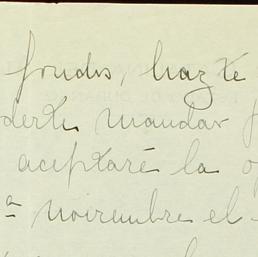 fondos, hazte
derte mandar f
aceptaré la o
a noviembre el